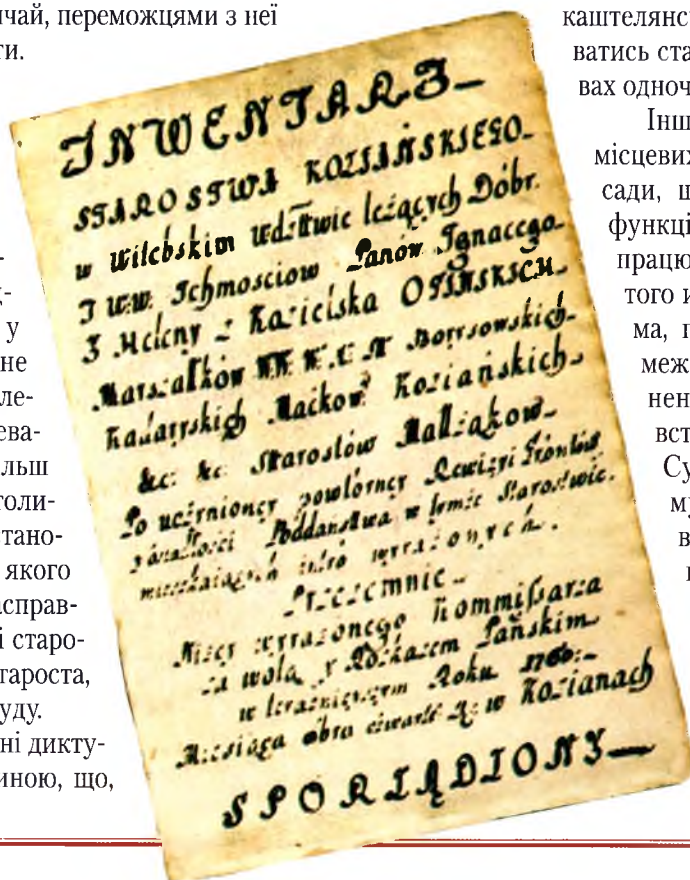 ичай, переможцями з неї
ти.
у
не
ле-
ева-
льш
толи-
тано-
якого
асправ-
і старо-
тароста,
уду.
ні дикту-
иною, що,
INWENTARZ
STAROSTWA KOZIAŃSKIEGO
w Witebskim Wdztwie leżących Dóbr
J WW Ichmosciow Panów Ignacego
Z Heleny z Kozielska OGIŃSKICH
Marszałków W. W. X. Borysowskich
Kadaryskich Maćkow Koziańskich
&c: &c: Starostów Małżąkow
Po uczynioney powtorney Rewizyi Gróntów
Poddaństwa w tymże Starostwie
mieszkaiących wyrażonych.
Przezemnie
Niżey wyrażonego Kommissarza
za wolą y Roskazem Pańskim
w teraznieyszym Roku
Miesiąca w Kozianach
SPORZĄDZONY
каштелянс
ватись ста
вах одноч
Інш
місцевих
сади, щ
функці
працю
того и
ма, п
меж
нен
вст
Су
му
в